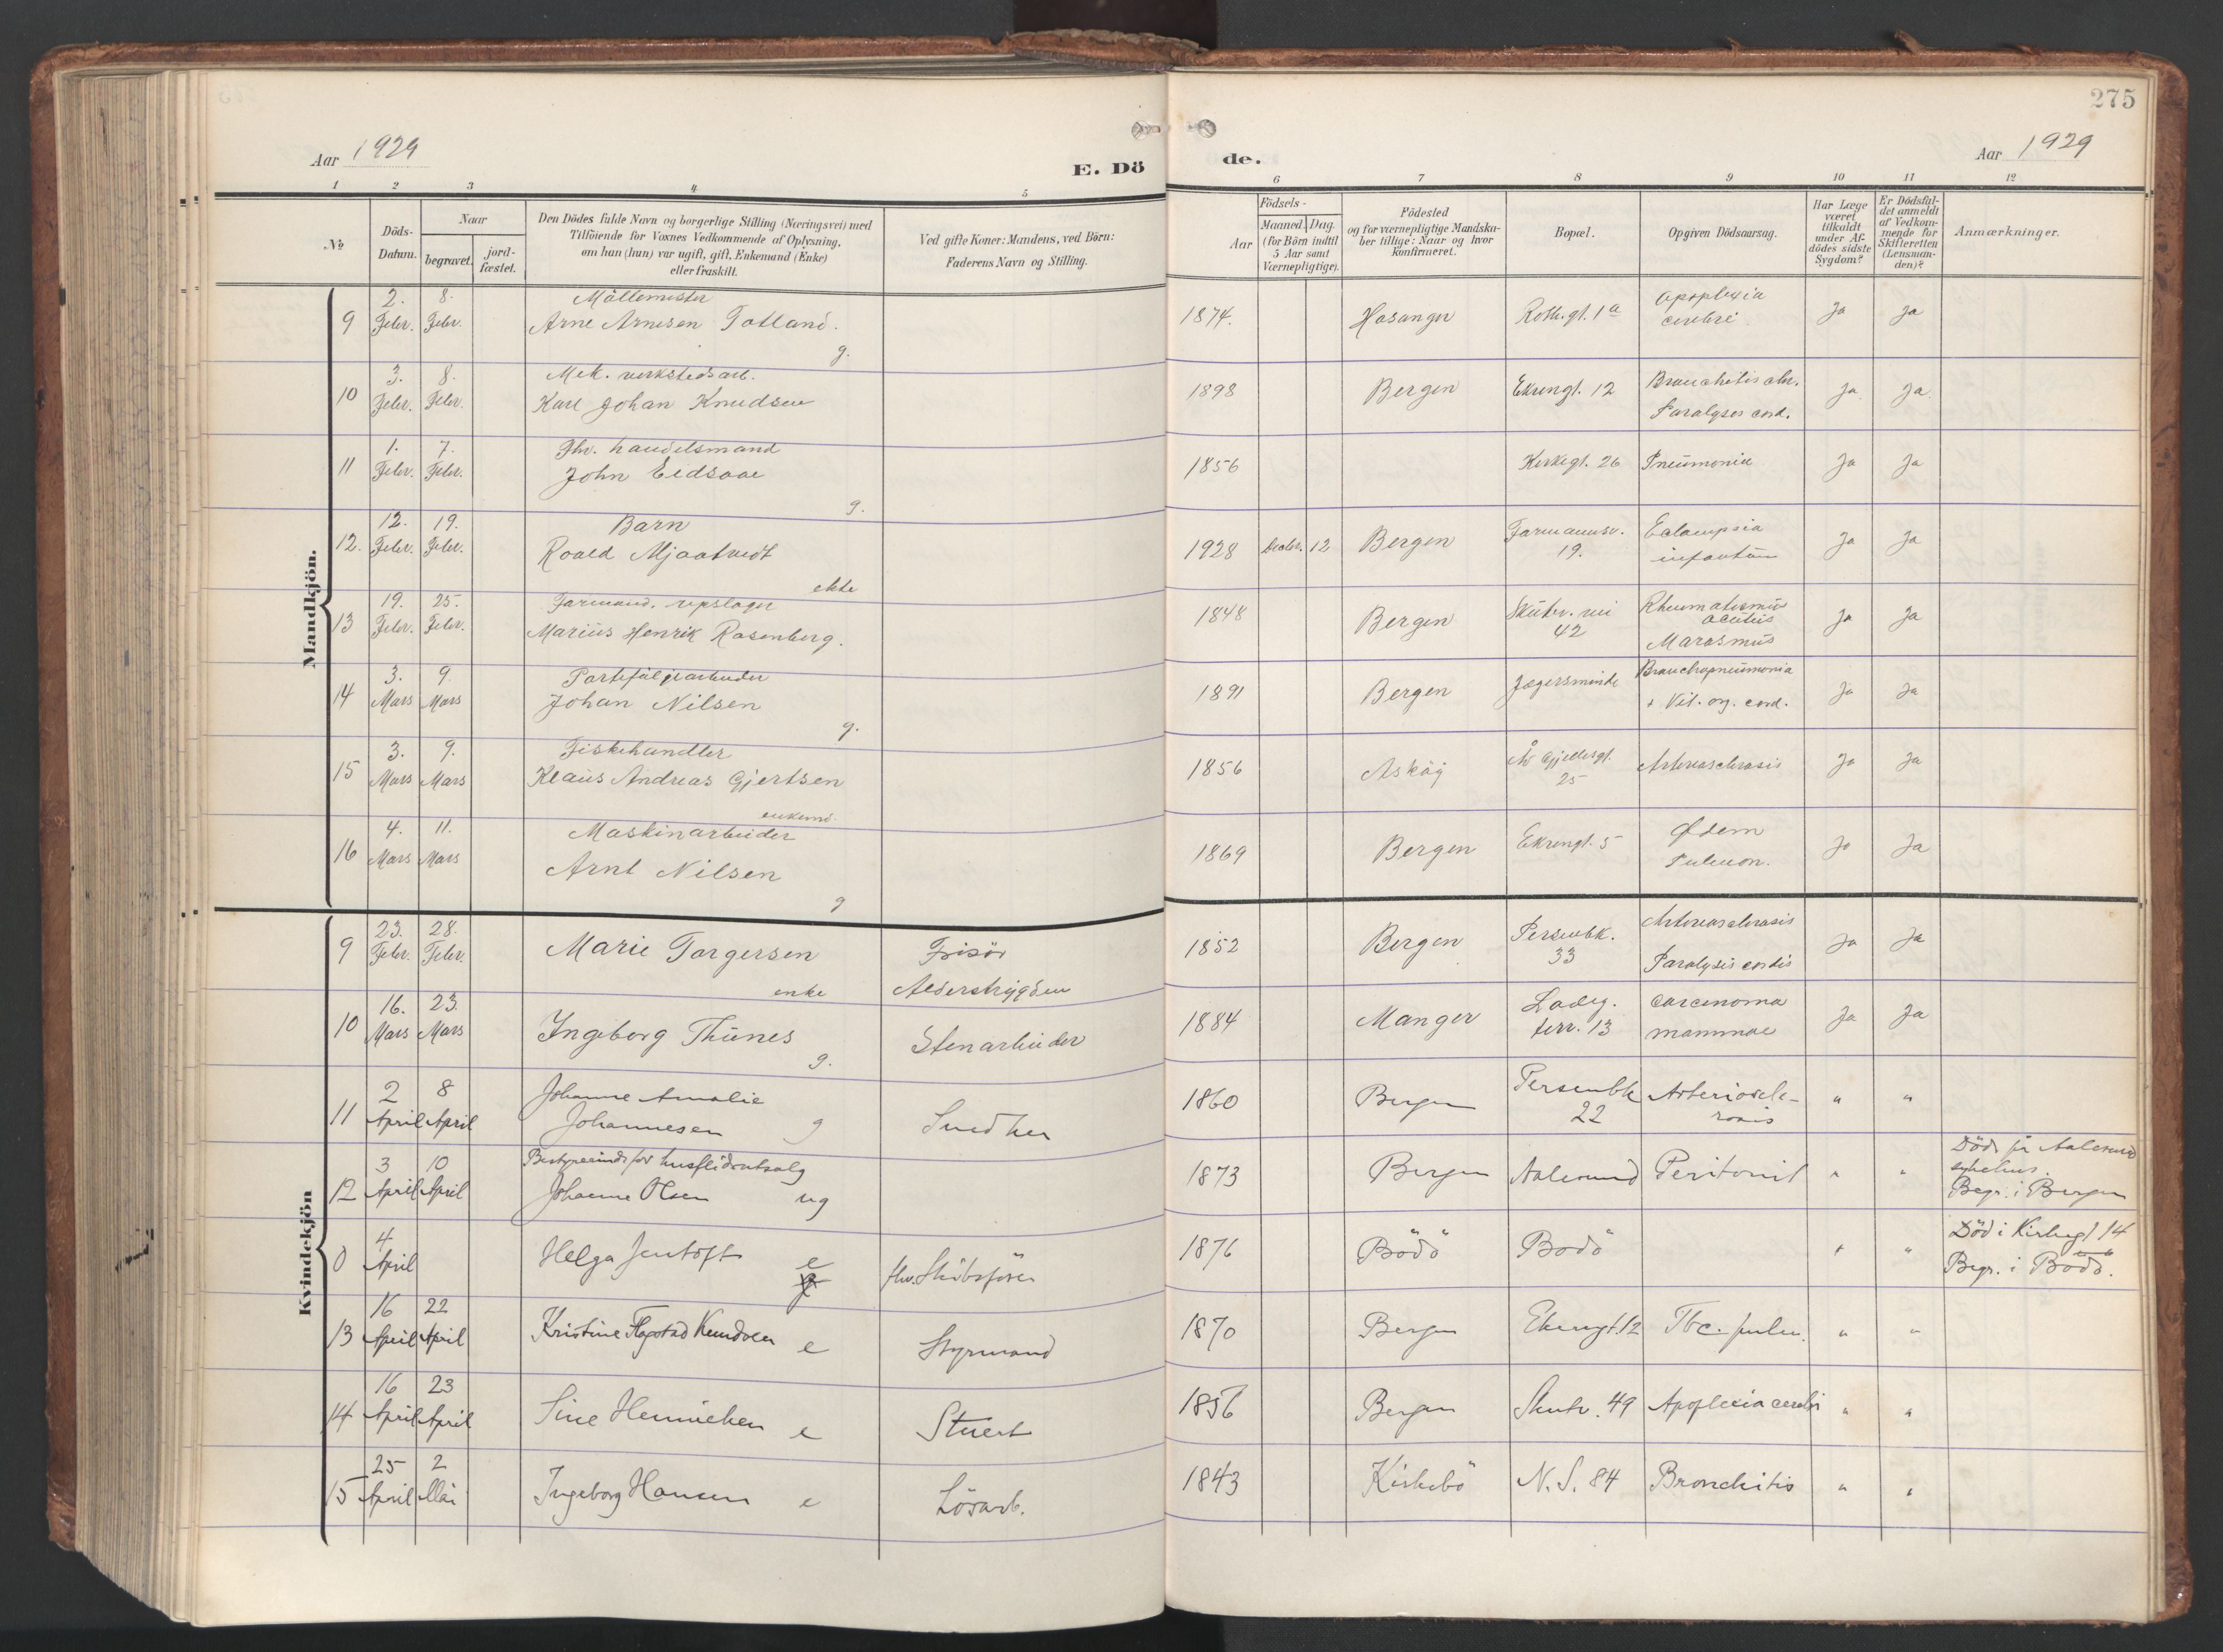 275
Aar 1929
E. Dö
de.
Aar 1929
1 2 3 4 5 6 7 8 9 10 11 12
№
Döds-
Datum.
Naar
begravet.
jord-
fæstet.
Den Dödes fulde Navn og borgerlige Stilling (Næringsvei) med
Tilföiende for Voxnes Vedkommende af Oplysning,
om han (hun) var ugift, gift, Enkemand (Enke)
eller fraskilt.
Ved gifte Koner: Mandens, ved Börn:
Faderens Navn og Stilling.
Födsels-
Aar
Maaned
Dag.
(for Börn indtil
5 Aar samt
Værnepligtige).
Födested
og for værnepligtige Mandska-
ber tillige: Naar og hvor
konfirmeret.
Bopæl.
Opgiven Dödsaarsag.
Har Læge
været
tilkaldt
under Af-
dödes sidste
Sygdom?
Er Dödsfal-
det anmeldt
af Vedkom-
mende for
Skifteretten
(Lensman-
den)?
Anmærkninger.
Mandkjön.
9 2. Febr. 8. Febr. Möllemester
Arne Arnesen Totland. g.
1874. Hosanger Roth.gt. 1a apoplexia
cerebri Ja Ja
10 3. Febr. 8. Febr. Mek. verkstedsarb.
Karl Johan Knudsen
1898 Bergen Ekrengt. 12 Bronchitis chr.
Paralyses cord. Ja Ja
11 1. Febr. 7. Febr. Fhv. handelsmand
John Eidsaae g.
1856 Kirkegt. 26 Pneumonia Ja Ja
12. 12. Febr. 19. Febr. Barn
Roald Mjaatvedt ekte
1928 Decbr. 12 Bergen Formannsv.
19. Eclampsia
infantum Ja Ja
13 19. Febr. 25. Febr. Formand, repslager
Marius Henrik Rosenberg.
1848 Bergen Skutev. vei
42 Rheumatismus
acutus
Marasmus Ja Ja
14 3. Mars 9. Mars Portefóljearbeider
Johan Nilsen g.
1891 Bergen Jægersminde Bronchopneumonia
+ Vit. org. cord. Ja Ja
15 3. Mars 9. Mars Fiskehandler
Klaus Andreas Gjertsen enkem.
1856 Askøy Gjellesgt.
25 Arteriosclerosis Ja Ja
16 4. Mars 11. Mars Maskinarbeider
Arnt Nilsen g
1869 Bergen Ekrengt. 5 Ødem
Pulmon. Ja Ja
Kvindekjön
9 23. Febr. 28. Febr. Marie Torgersen enke
Frisör
1852 Bergen Persenbk.
33 Arteriosclerosis
Paralysis cordis Ja Ja
10 16. Mars 23. Mars Ingeborg Thunes g.
Stenarbeider
1884 Manger Ladeg.
terr. 13 carcinoma
mammae Ja Ja
11 2 April 8 April Johanne Amalie
Johannesen g
1860 Bergen Persenbk
22 Arterioscle-
rosis " "
12 3 April 10 April Bestyrerinde for husflidsutsalg
Johanne Olsen ug
1873 Bergen Aalesund Peritonit " " Död på Aalesund
sykehus.
Begr. i Bergen
0 4 April Helga Jentoft e
fhv. Skibsförer
1876 Bodö Bodö " " Död i Kirkegt 14
Begr. i Bodö.
13 16 April 22 April Kristine Flagstad Knudsen e
Styrmand
1870 Bergen Ekrengt. 12 Tbc. pulm. " "
14 16 April 23 April Sine Hennichen e
Stuert
1856 Bergen Skutv. 49 Apoplexia cerebri " "
15 25 April 2 Mai Ingeborg Hansen e
Lösarb.
1843 Kirkebö N. S. 84 Bronchitis " "